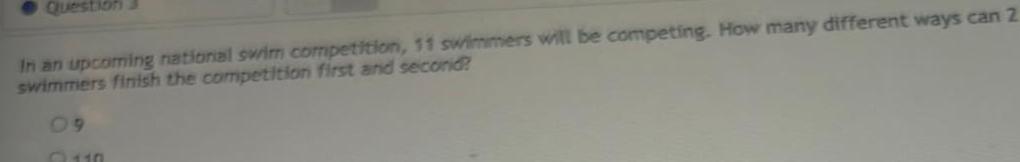 Question 3
In an upcoming national swim competition, 11 swimmers will be competing. How many different ways can 2
swimmers finish the competition first and second?
9
110